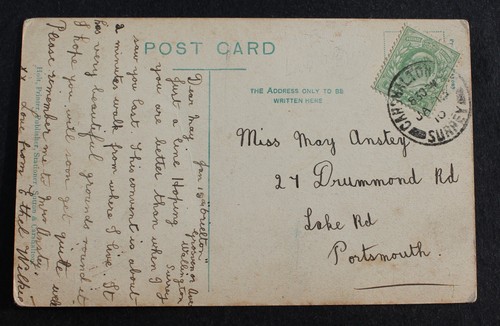 POST CARD
THE ADDRESS ONLY TO BE
WRITTEN HERE
CARSHALTON
SURREY
Miss May Anstey
27 Drummond Rd
Lake Rd
Portsmouth.
Jan 18th
Grosvenor Ave
Wallington
Surrey
Dear May,
Just a line Hoping
you are better than when I
saw you last. This convent is about
2 minutes walk from where I live. It
has very beautiful grounds round it
I hope you will soon get quite well
Please remember me to Mrs Anstey.
xx Love from Ethel